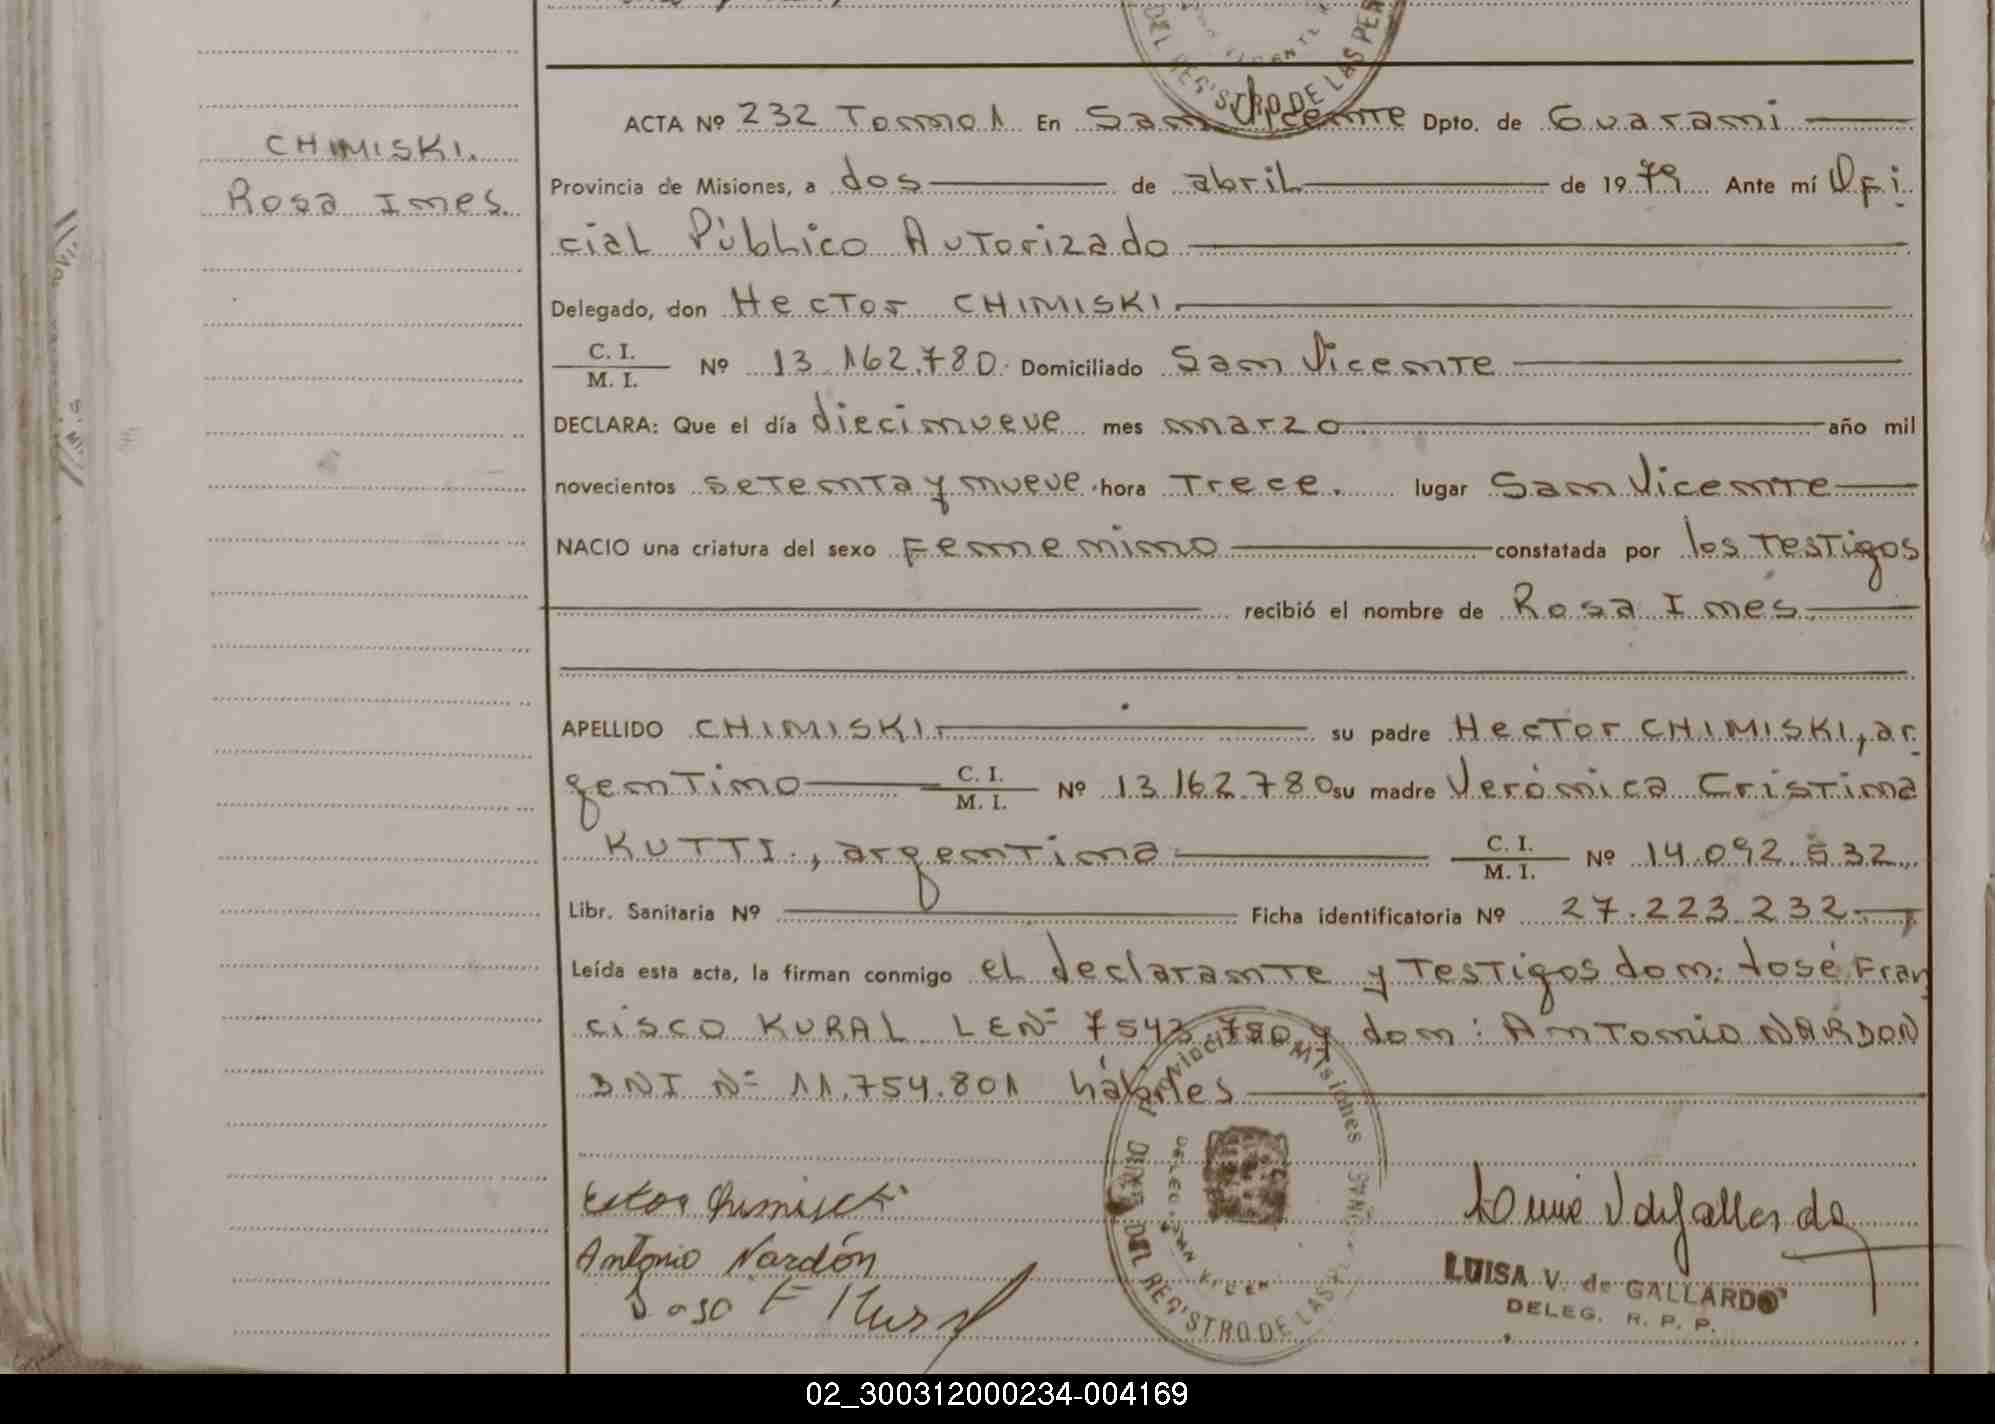 CHIMISKI.
Rosa Ines
ACTA Nº 232 Tomo 1 En San Vicente Dpto. de Guarani
Provincia de Misiones, a dos de abril de 1979 Ante mí Ofi
cial Público Autorizado
Delegado, don Hector CHIMISKI
C. I.
M. I. Nº 13.162.780. Domiciliado San Vicente
DECLARA: Que el día diecinueve mes marzo año mil
novecientos setenta y nueve hora Trece. lugar San Vicente
NACIO una criatura del sexo Femenino constatada por los testigos
recibió el nombre de Rosa Inés
APELLIDO CHIMISKI su padre Hector CHIMISKI, ar
gentino C. I.
M. I. Nº 13.162.780 su madre Verónica Cristina
KUTTI, argentina C. I.
M. I. Nº 14.092.532
Libr. Sanitaria Nº Ficha identificatoria Nº 27.223.232
Leída esta acta, la firman conmigo el declarante y testigos don: José Fran
cisco KURAL LE Nº 7543.780 y don: Antonio NARDON
DNI Nº 11.754.801 hábiles
Provincia de Misiones
DEL REGISTRO DE LAS
Antonio Nardón
LUISA V. de GALLARDO
DELEG. R. P. P.
02_300312000234-004169